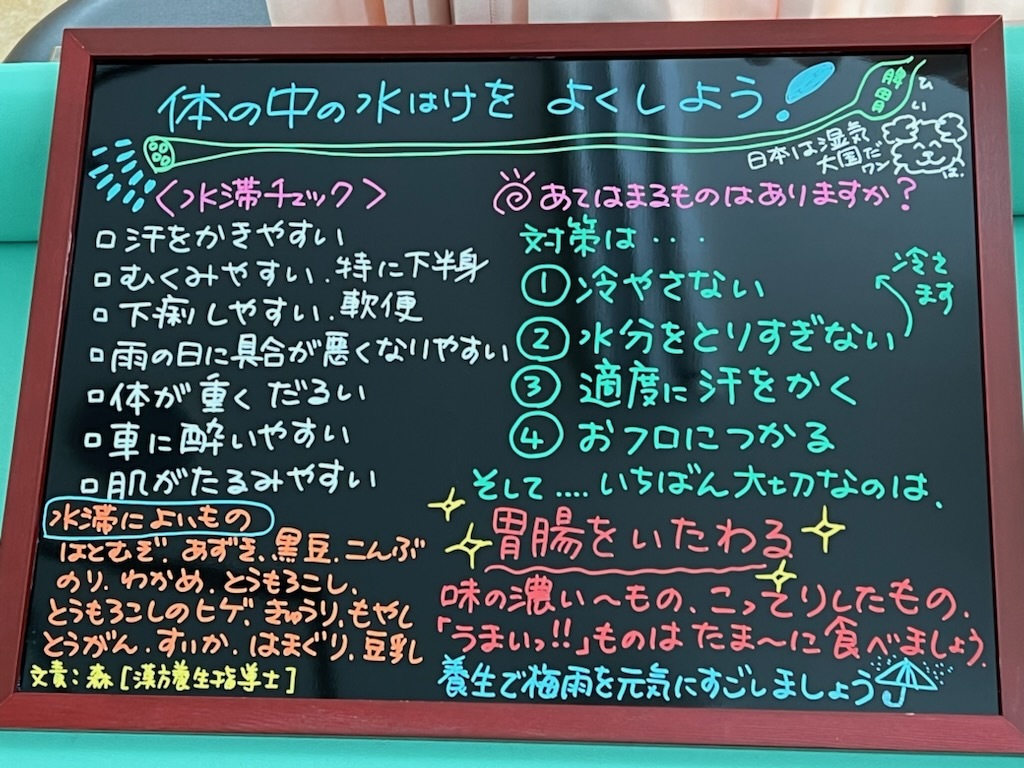 体の中の水はけを よくしよう!
脾胃
ひい
日本は湿気
大国だ
ワン
<水滞チェック>
□汗をかきやすい
□むくみやすい.特に下半身
□下痢しやすい.軟便
□雨の日に具合が悪くなりやすい
□体が重くだるい
□車に酔いやすい
□肌がたるみやすい
水滞によいもの
はとむぎ.あずき.黒豆.こんぶ
のり.わかめ.とうもろこし.
とうもろこしのヒゲ.きゅうり.もやし
とうがん.すいか.はまぐり.豆乳
文責:森[漢方養生指導士]
あてはまるものはありますか?
対策は・・・
①冷やさない
冷え
ます
②水分をとりすぎない
③適度に汗をかく
④おフロにつかる
そして....いちばん大切なのは、
胃腸をいたわる
味の濃い〜もの、こってりしたもの、
「うまいっ!!」ものはたま〜に食べましょう.
養生で梅雨を元気にすごしましょう